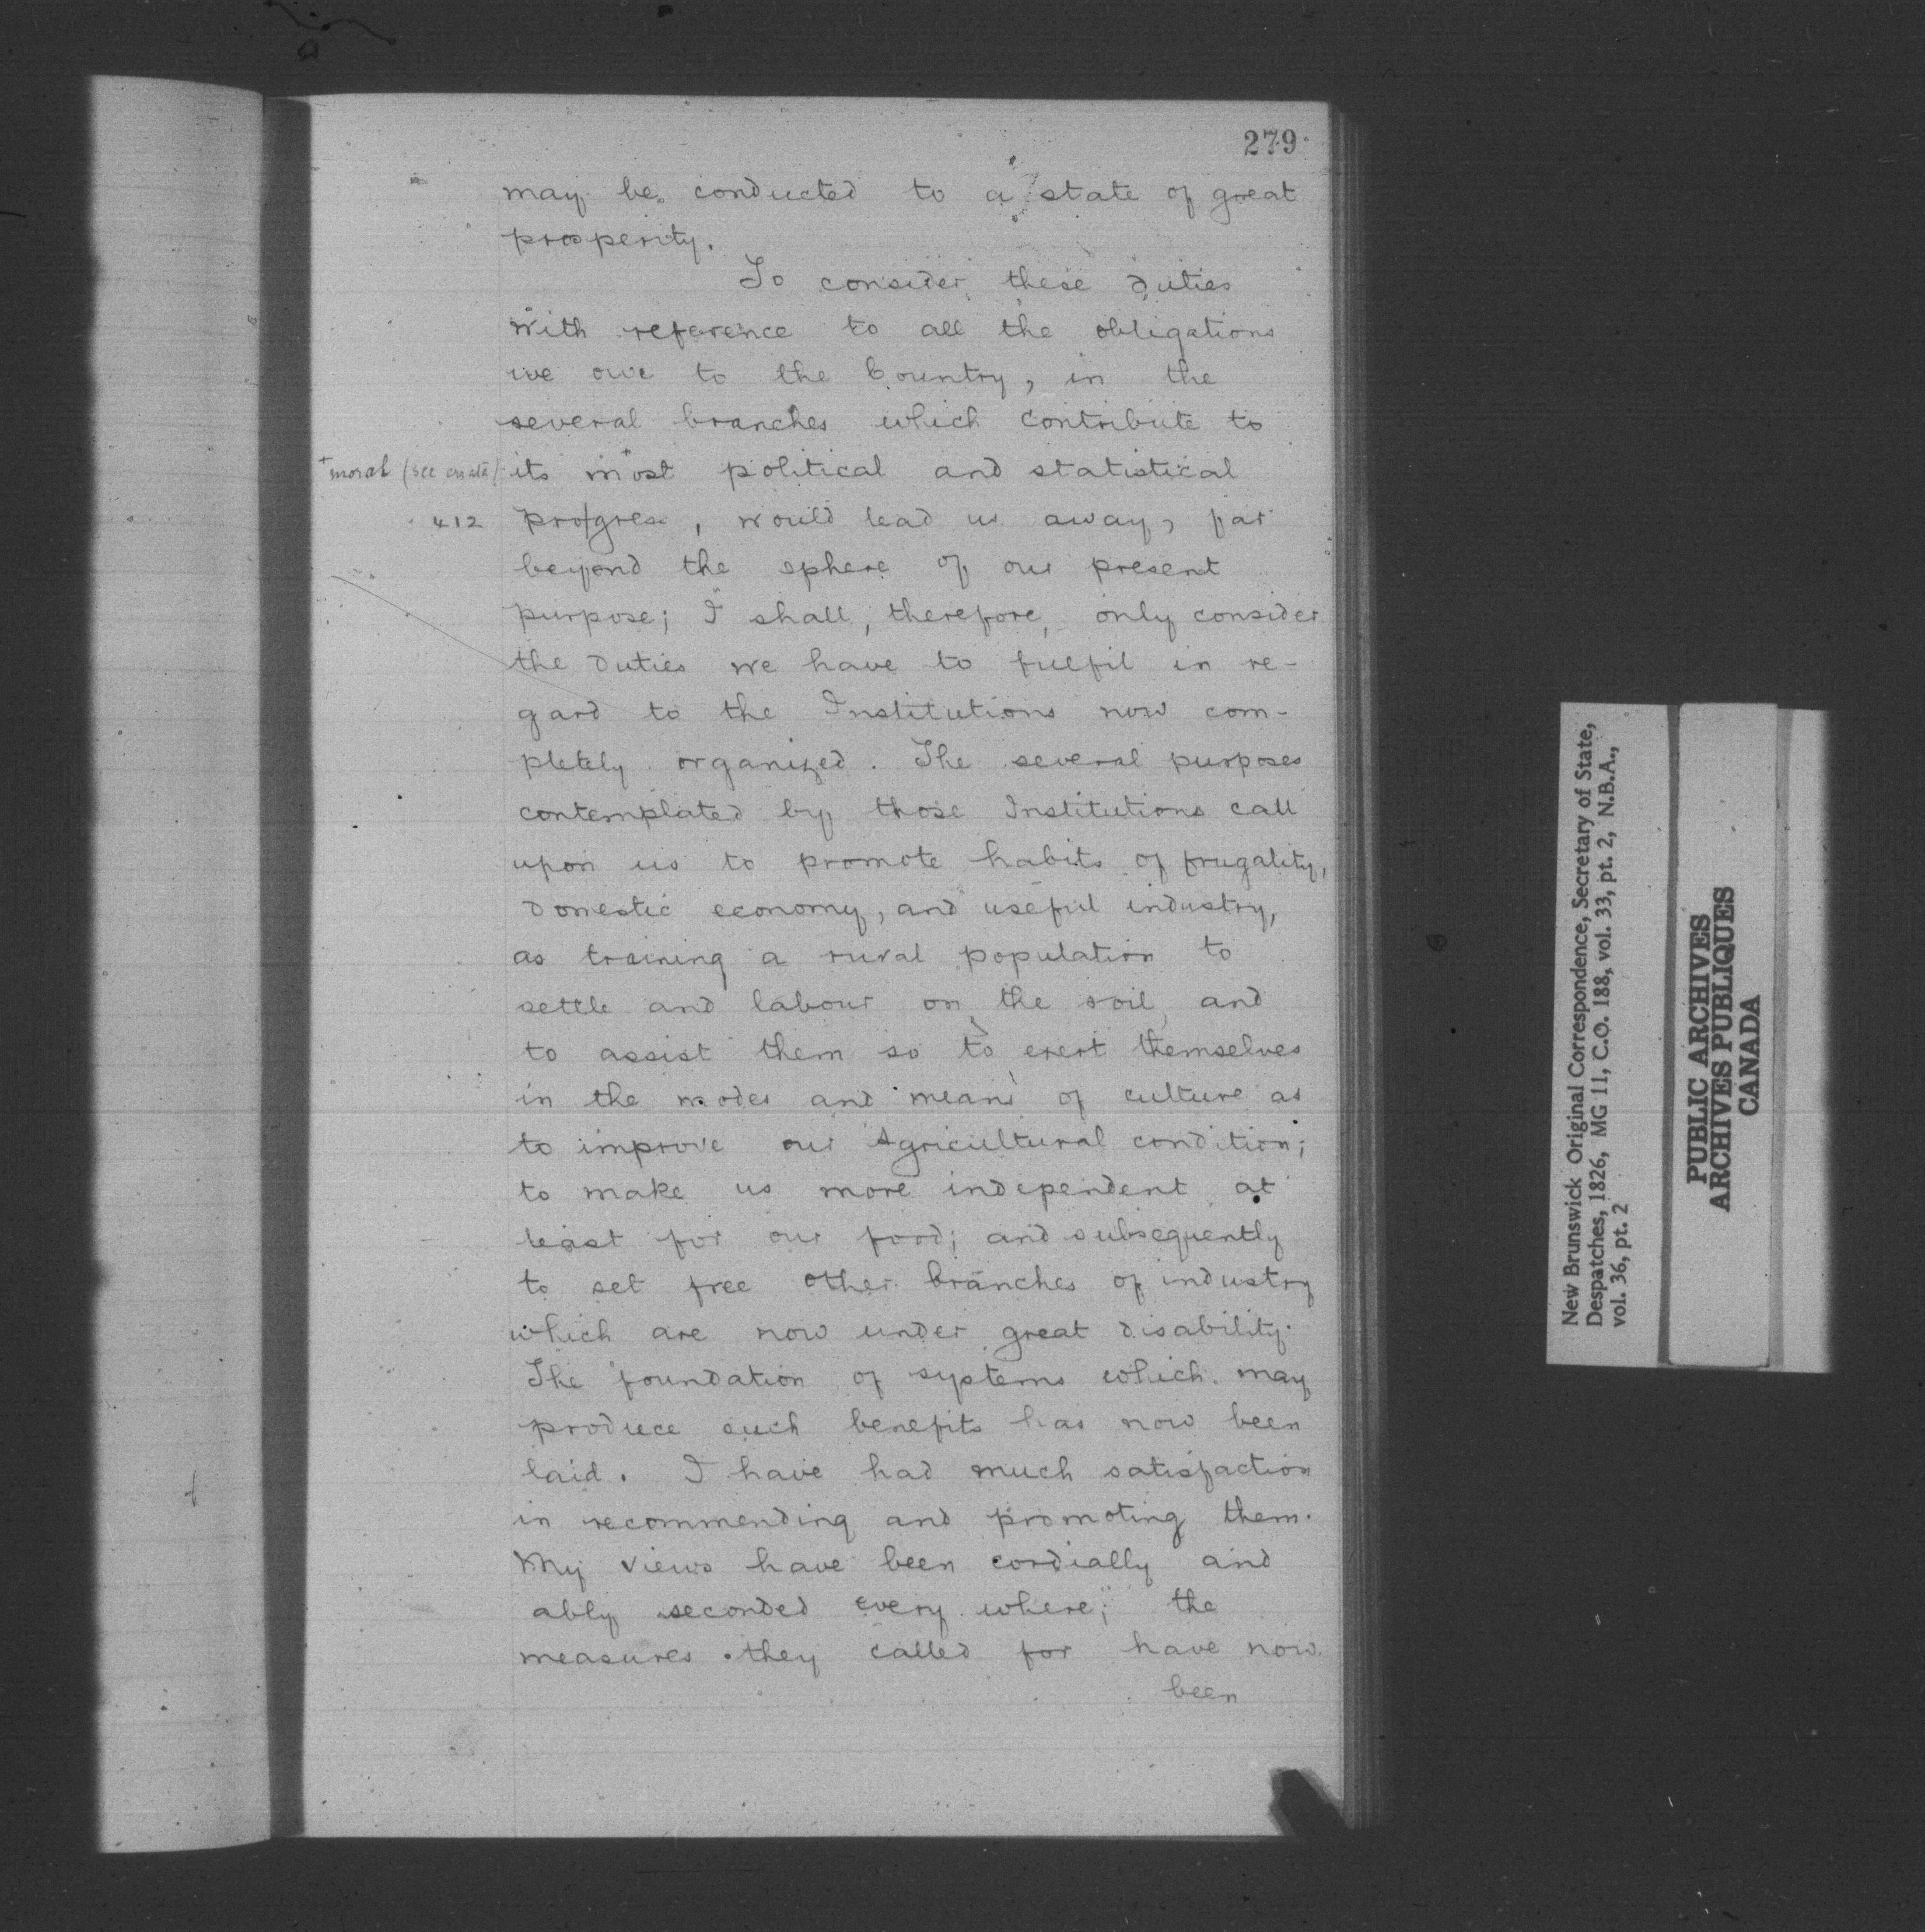 279
may be conducted to a state of great
prosperity.
To consider these duties
with reference to all the obligations
we owe to the Country, in the
several branches which contribute to
+moral (see errata) its m+ost political and statistical
412 pro/gress, would lead us away, far
beyond the sphere of our present
purpose; I shall, therefore, only consider
the duties we have to fulfil in re-
gard to the Institutions now com-
pletely organized. The several purposes
contemplated by those Institutions call
upon us to promote habits of frugality,
domestic economy, and useful industry,
as training a rural population to
settle and labour on the soil, and
to assist them so to exert themselves
in the modes and means of culture as
to improve our Agricultural condition;
to make us more independent at
least for our food; and subsequently
to set free other branches of industry
which are now under great disability.
The foundation of systems which may
produce such benefits has now been
laid. I have had much satisfaction
in recommending and promoting them.
My views have been cordially and
ably seconded every where; the
measures they called for have now
been
New Brunswick Original Correspondence, Secretary of State,
Despatches, 1826, MG 11, C.O. 188, vol. 33, pt. 2, N.B.A.,
vol. 36, pt. 2
PUBLIC ARCHIVES
ARCHIVES PUBLIQUES
CANADA